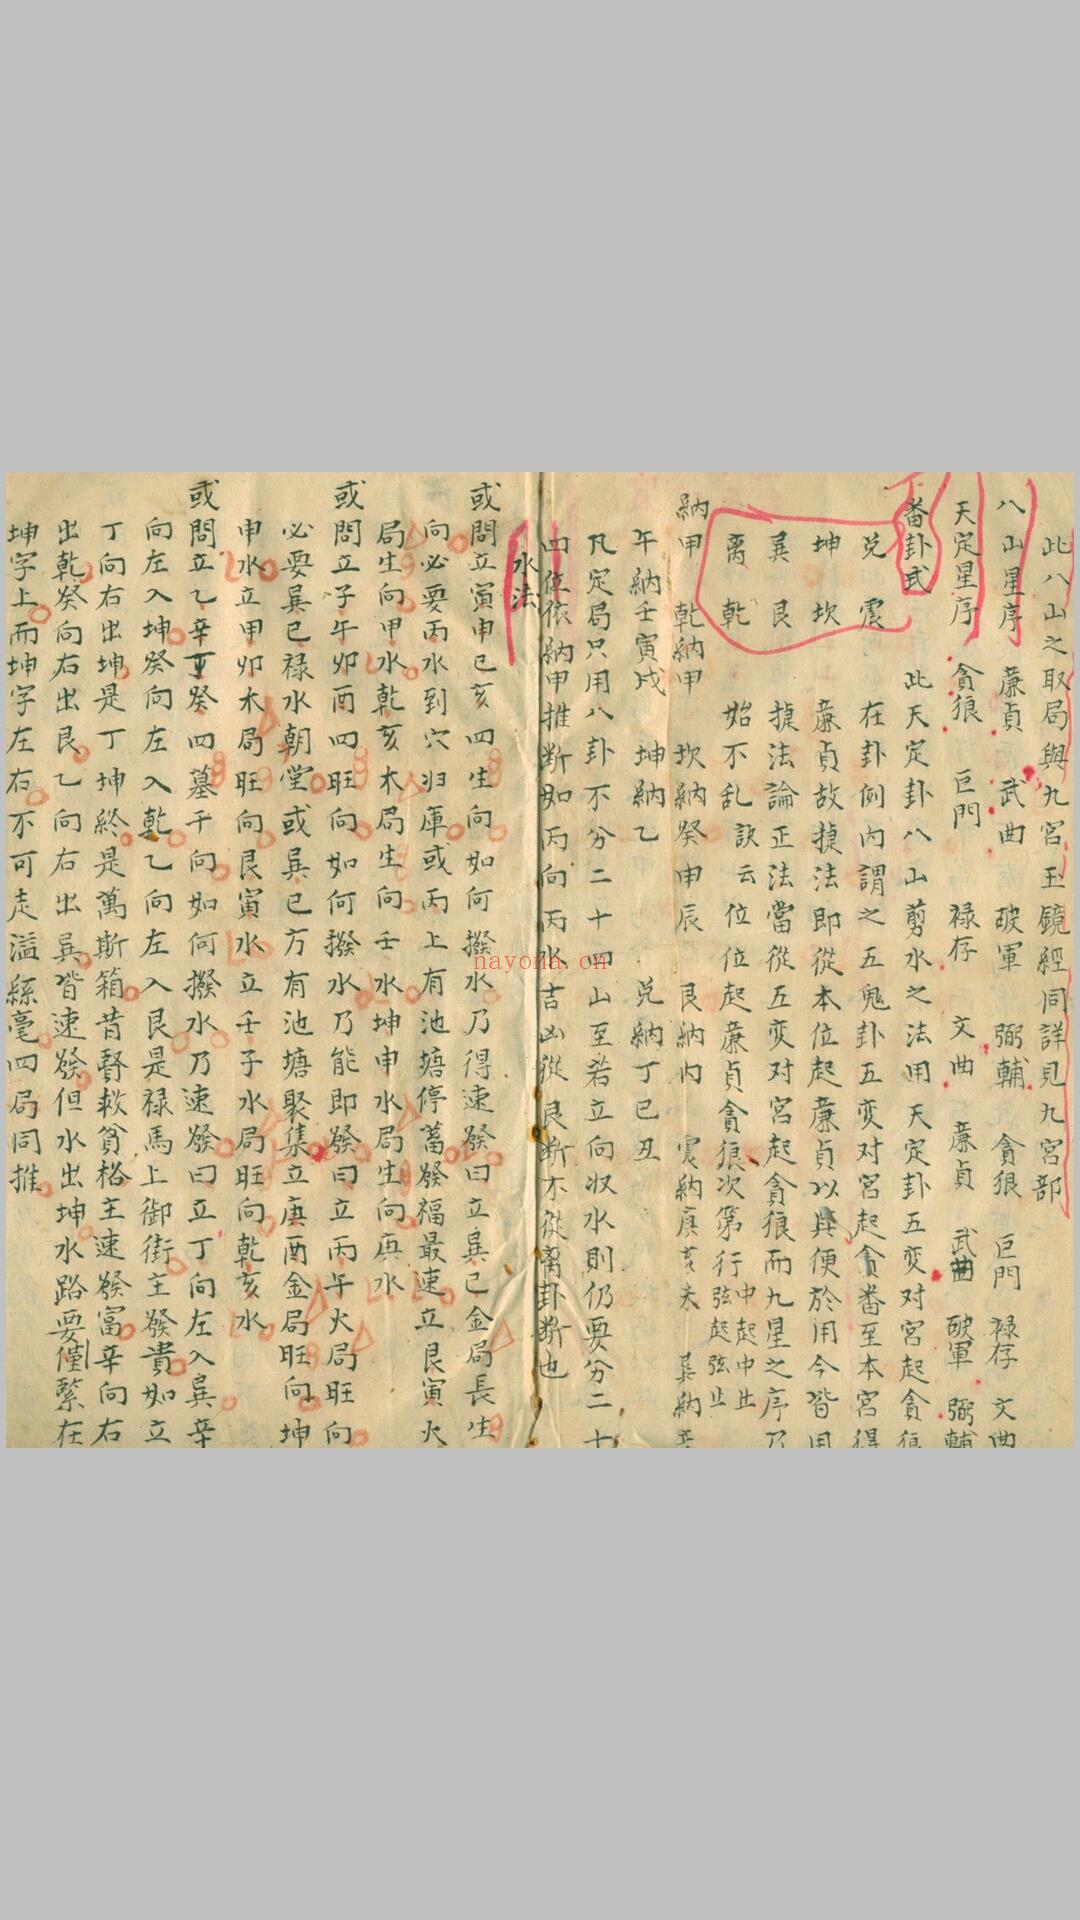 此八山之取局與九宮玉鏡經同詳見九宮部
八山星序 廉貞 武曲 破軍 弼輔 貪狼 巨門 祿存 文曲
天定星序 貪狼 巨門 祿存 文曲 廉貞 武曲 破軍 弼輔
番卦式 此天定卦八山剪水之法用天定卦五变对宮起貪狼
兌震 在卦例內謂之五鬼卦五变对宮起貪番至本宮得
坤坎 廉貞故捷法即從本位起廉貞以其便於用今皆用
巽艮 捷法論正法當從五变对宮起貪狼而九星之序乃
离乾 始不乱 訣云 位位起廉貞貪狼次第行中起中止弦起弦止
納甲 乾納甲 坎納癸申辰 艮納丙 震納庚亥未 巽納辛
午納壬寅戌 坤納乙 兌納丁巳丑
凡定局只用八卦不分二十四山至若立向収水則仍要分二十
四位依納甲推断如丙向丙水吉凶從艮断不從离卦断也
水法
或問立寅申巳亥四生向如何撥水乃得速發曰立巽巳金局長生
向必要丙水到穴归庫或丙上有池塘停蓄發福最速立艮寅火
局生向甲水乾亥木局生向壬水坤申水局生向庚水
或問立子午卯酉四旺向如何撥水乃能即發曰立丙午火局旺向
必要巽巳祿水朝堂或巽巳方有池塘聚集立庚酉金局旺向坤
申水立甲卯木局旺向艮寅水立壬子水局旺向乾亥水
或問立乙辛丁癸四墓干向如何撥水乃速發曰立丁向左入巽辛
向左入坤癸向左入乾乙向左入艮是祿馬上御街主發貴如立
丁向右出坤是丁坤終是萬斯箱昔賢救貧格主速發富辛向右
出乾癸向右出艮乙向右出巽皆速發但水出坤水路要僅繫在
坤字上而坤字左右不可走溢絲毫四局同推
nayona.cn